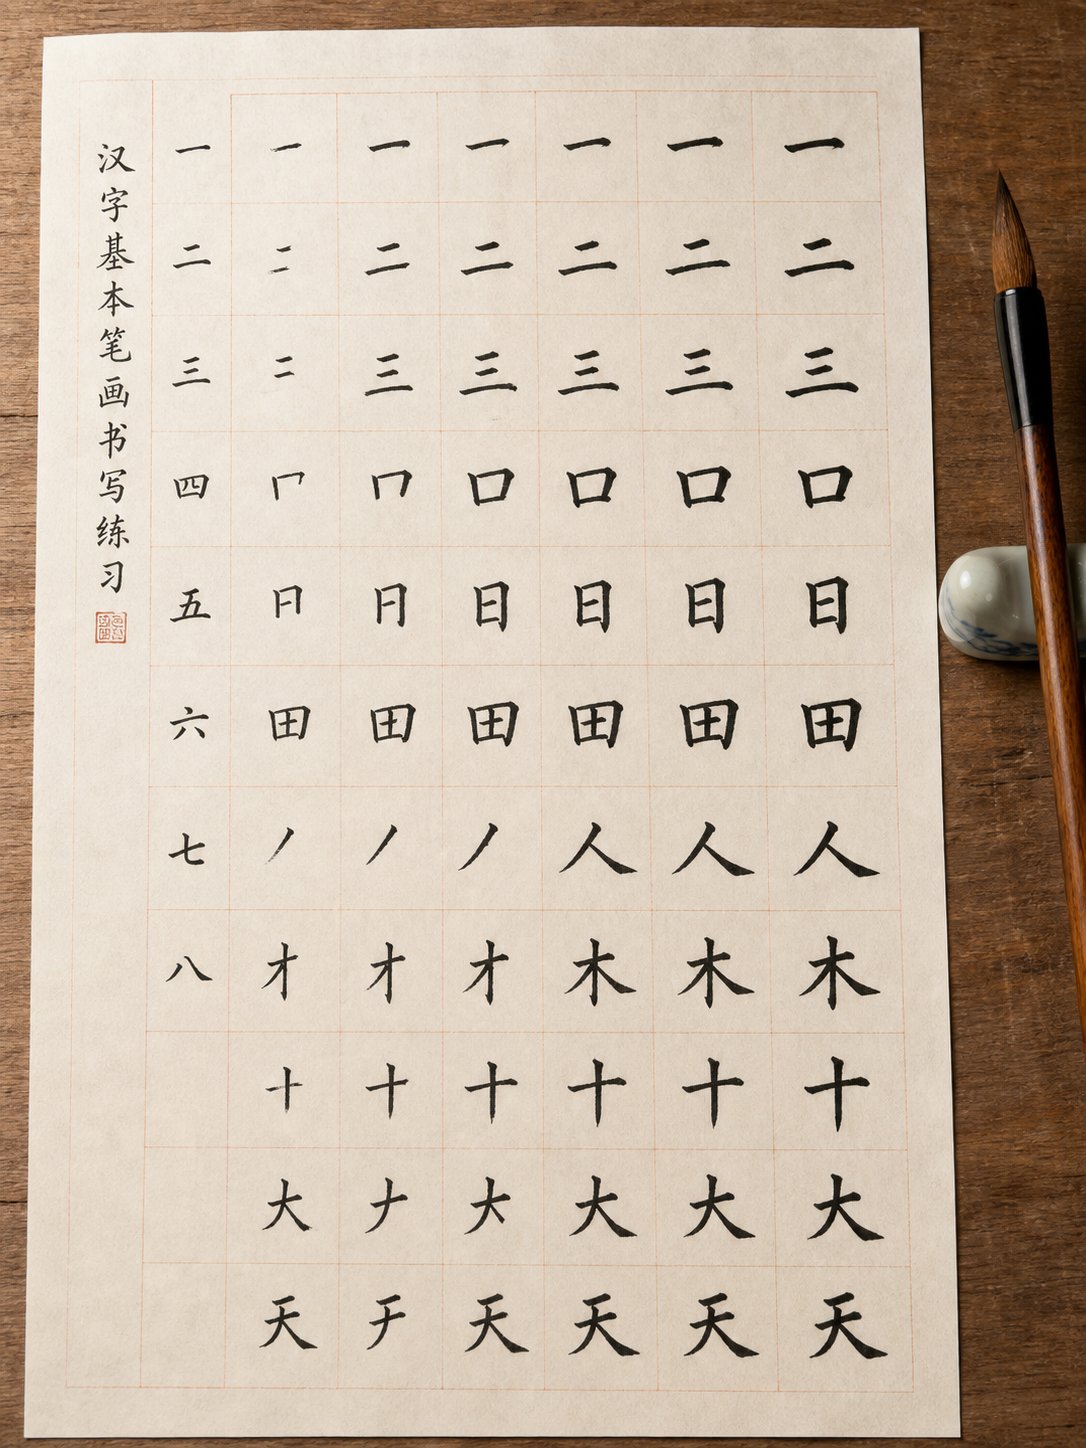 汉字基本笔画书写练习
一 一 一 一 一 一 一
二 二 二 二 二 二 二
三 二 三 三 三 三 三
四 冂 冂 口 口 口 口
五 日 日 日 日 日
六 田 田 田 田 田 田
七 丿 丿 丿 人 人 人
八 才 才 才 木 木 木
十 十 十 十 十 十
大 𠂇 大 大 大 大
天 天 天 天 天